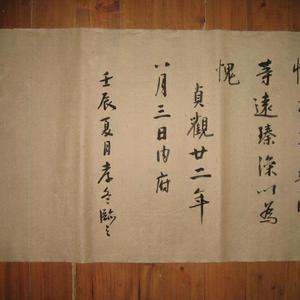 等遠臻深以為
愧
貞觀廿二年
八月三日内府
壬辰夏月孝冬臨之